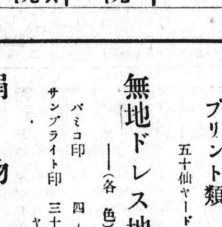 プリント類
五十仙ヤード
無地ドレス地
——(各 色)
バミコ印 四
サンプライト印 三十
物